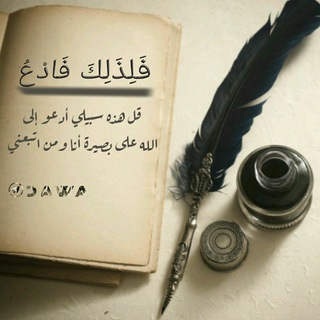 فَلِذَلِكَ فَادْعُ
قل هذه سبيلي أدعو إلى
الله على بصيرة أنا ومن اتبعني
@DAWA